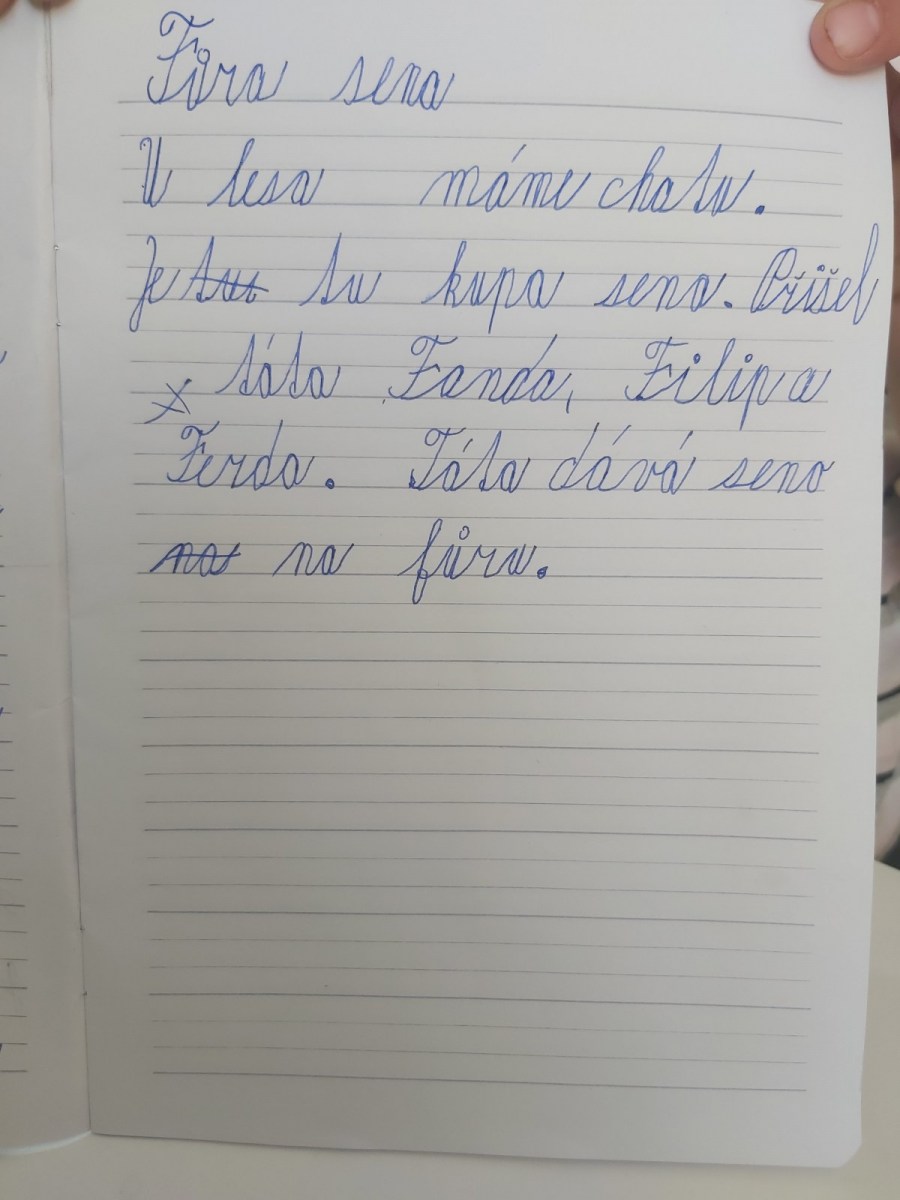 Fůra sena
U lesa máme chatu.
Je tu kupa sena. Přišel
táta Fanda, Filip a
Ferda. Táta dává seno
na fůru.